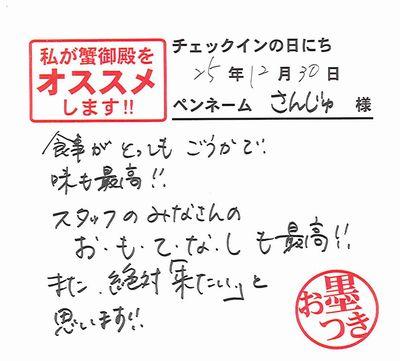 私が蟹御殿を
オススメ
します!!
チェックインの日にち
25年12月30日
ペンネーム さんじゅ 様
食事がとっても ごうかで
味も最高!!
スタッフのみなさんの
お・も・て・な・しも最高!!
また、絶対「来たい」と
思います!!
お墨つき